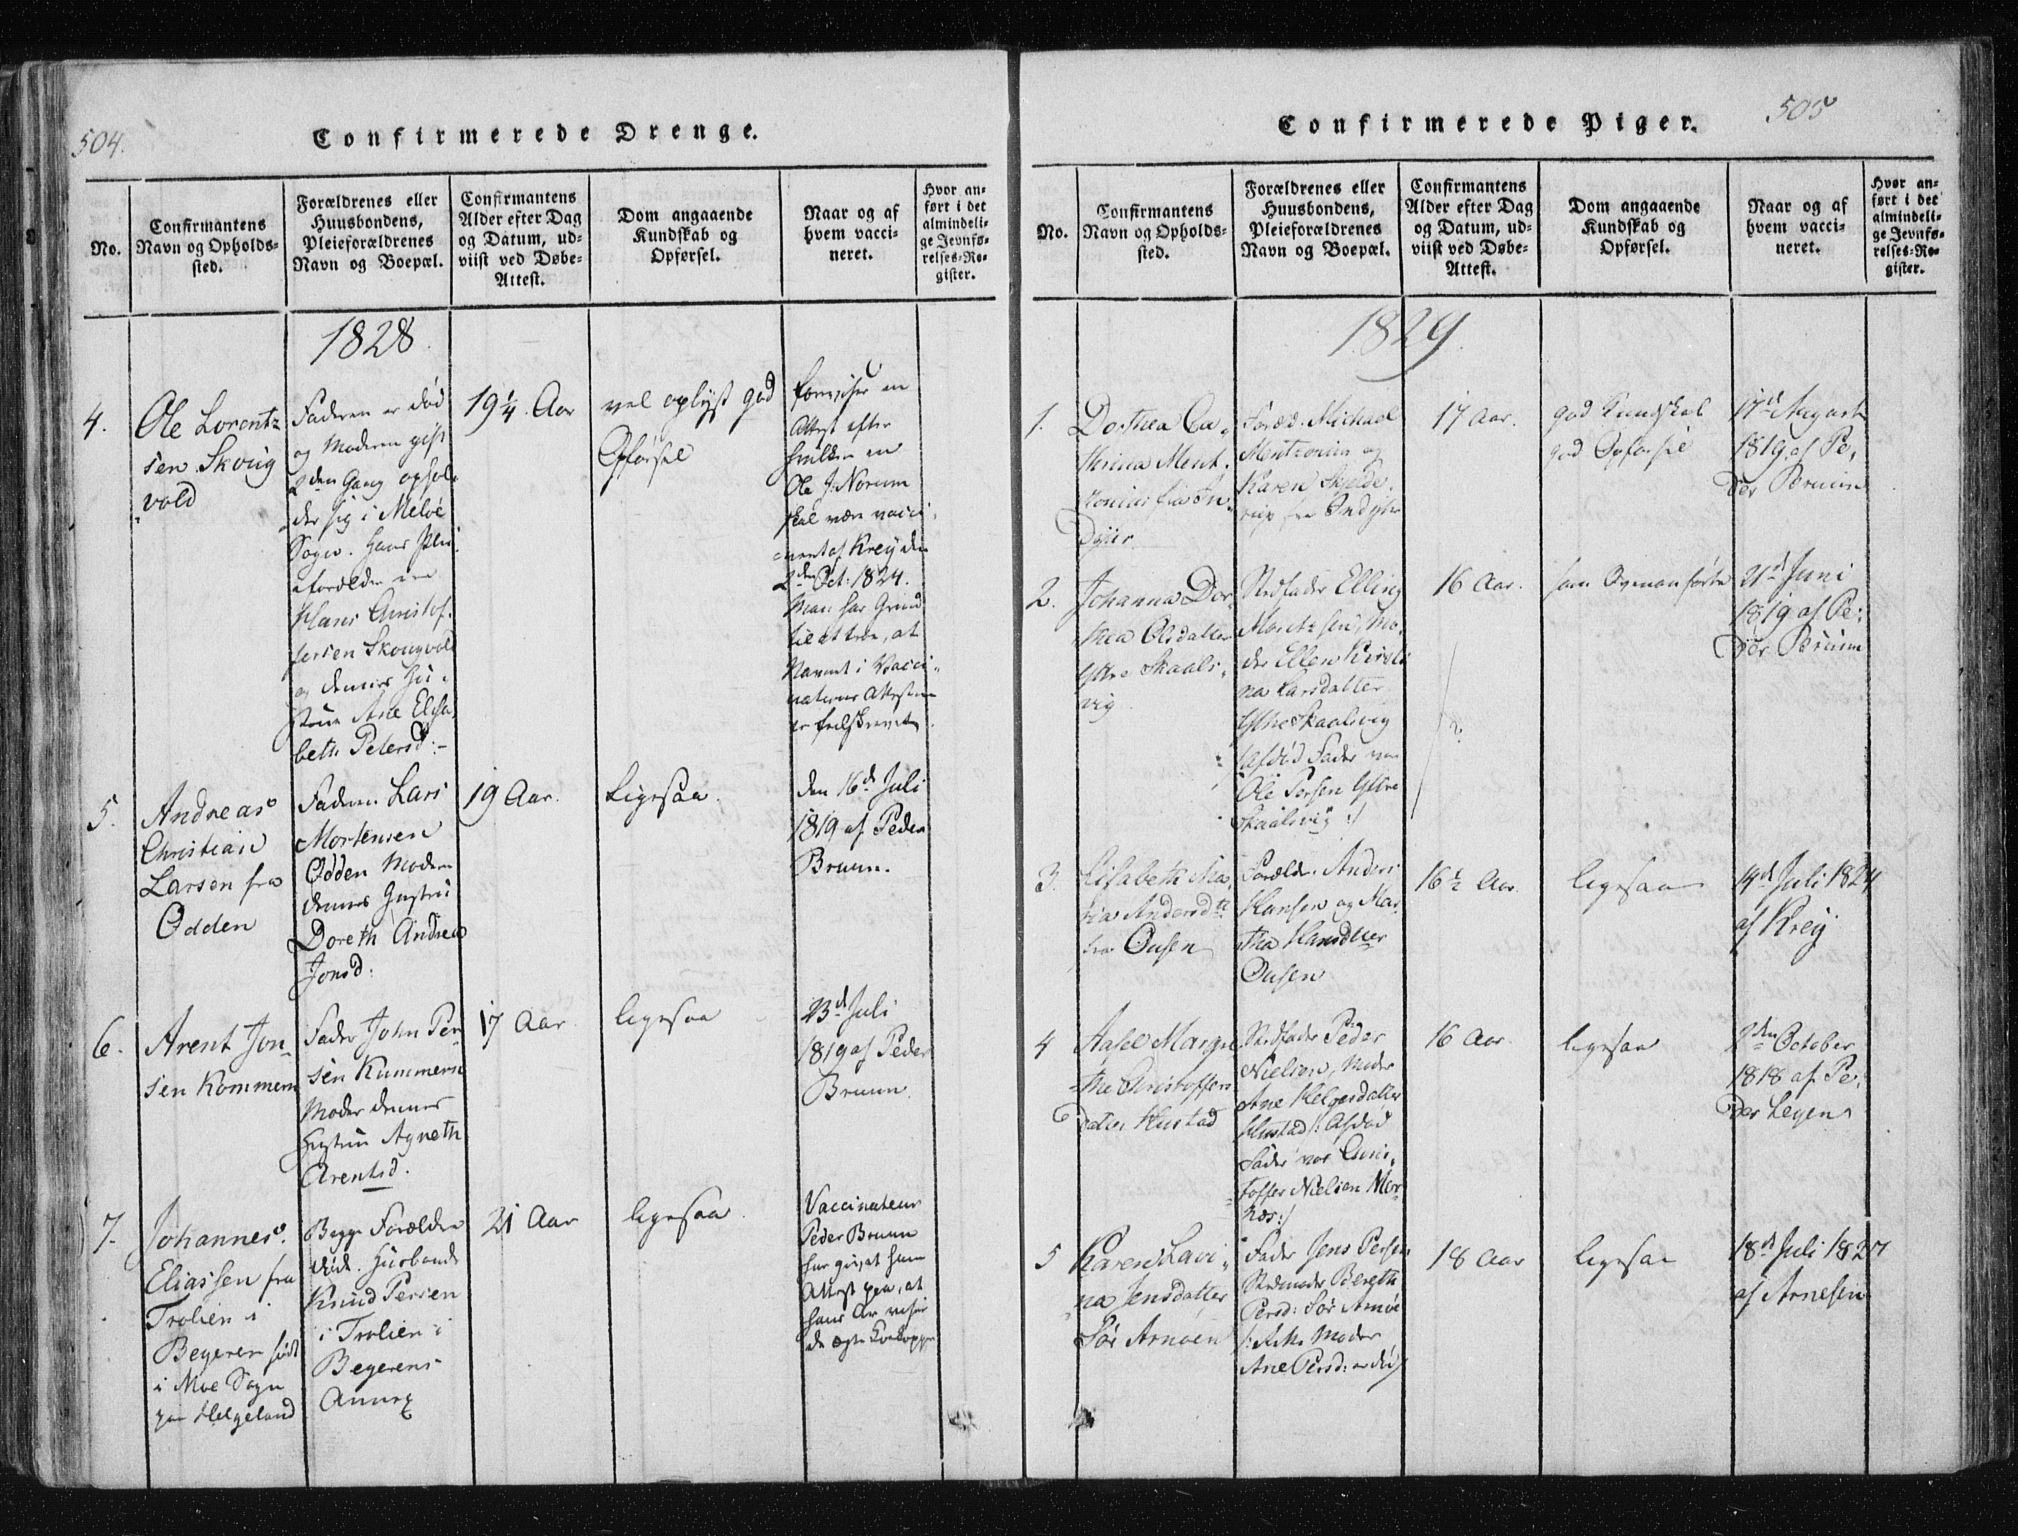 504.
Confirmerede Drenge.
No.
Confirmantens
Navn og Opholds-
sted.
Forældrenes eller
Huusbondens,
Pleieforældrenes
Navn og Boepæl.
Confirmantens
Alder efter Dag
og Datum, ud-
viist ved Døbe-
Attest.
Dom angaaende
Kundskab og
Opførsel.
Naar og af
hvem vacci-
neret.
Hvor an-
ført i det
almindeli-
ge Jevnfø-
relses-Re-
gister.
1828
4.
Ole Lorentz
sen Skoug
vold
Faderen er død
og Moderen gift
2den Gang ophol-
der sig i Meløe
Sogn. Hans Plei-
eforældre ere
Hans Christof-
fersen Skougvold
og dennes Hu-
strue Ane Elisa-
beth Petersd:
19 1/4 Aar
vel oplyst god
Opførsel
foreviser en
Attest efter
hvilken en
Ole J: Norum
skal være vacci-
neret af Krey den
2den Oct: 1824.
Man har Grund
til at troe, at
Navnet i Vacci-
nations Attesten
er feilskrevet.
5.
Andreas
Christian
Larsen fra
Odden
Faderen Lars
Mortensen
Odden Moderen
dennes Hustru
Doreth Andrea
Jonsd:
19 Aar.
Ligesaa.
den 16d Juli
1819 af Peder
Bruun.
6.
Arent Jon-
sen Kommern
Fader John Per
sen Kummern
Moder dennes
Hustru Agneth
Arentsd.
17 Aar
ligesaa
23d Juli
1819 af Peder
Bruun.
7.
Johannes
Eliassen fra
Trolien i
Begeren født
i Moe Sogn
paa Helgeland
Begge Forældre
døde. Husbonde
Knud Persen
i Trolien i
Begerens
Annex
21 Aar
ligesaa.
Vaccinateur
Peder Bruun
har givet ham
Attest paa, at
hans Ar viser
de ægte Kokopper
505
Confirmerede Piger.
No.
Confirmantens
Navn og Opholds-
sted.
Forældrenes eller
Huusbondens,
Pleieforældrenes
Navn og Boepæl.
Confirmantens
Alder efter Dag
og Datum, ud-
viist ved Døbe-
Attest.
Dom angaaende
Kundskab og
Opførsel.
Naar og af
hvem vacci-
neret.
Hvor an-
ført i det
almindeli-
ge Jevnfø-
relses-Re-
gister.
1829.
1.
Dorthea Ca-
thrina Ment-
zonius fra In-
dyir
Foræld. Michael
Mentzonius og
Karen Skjelde-
rup fra Indyir
17 Aar.
god Kundskab
god Opførsel
17d August
1819 af Pe-
der Bruun
2.
Johanna Dor-
thea Olsdatter
Yttre Skaals-
vig
Stedfader Elling
Moritzsen, Mo-
der Ellen Kirsti-
na Larsdatter
Yttre Skaalsvig
/: afdød Fader var
Ole Persen Yttre
Skaalsvig :/
16 Aar.
som Ovenanførte
21d Juni
1819 af Pe-
der Bruun
3.
Elisabeth Ma-
ria Andersdtr
fra Ousen
Forældre Anders
Hansen og Mar-
tha Hansdtter
Ousen
16 1/2 Aar.
ligesaa
14d Juli 1824
af Krey
4
Aasel Margre
the Christoffers
datter Hustad
Stedfader Peder
Nielsen, Moder
Ane Helgesdatter
Hustad /: Afdød
Fader var Chris-
toffer Nielsen Mor-
næs:/
16 Aar
ligesaa
2den October
1818 af Pe-
der Leyen
5
Karen Lavi-
na Jensdatter
Sør Arnøen
Fader Jens Persen
Stedmoder Bereth
Persd: Sør Arnøe
/: Rette Moder
Ane Persd: er død:/
18 Aar
ligesaa
18d Juli 1827
af Arnesen